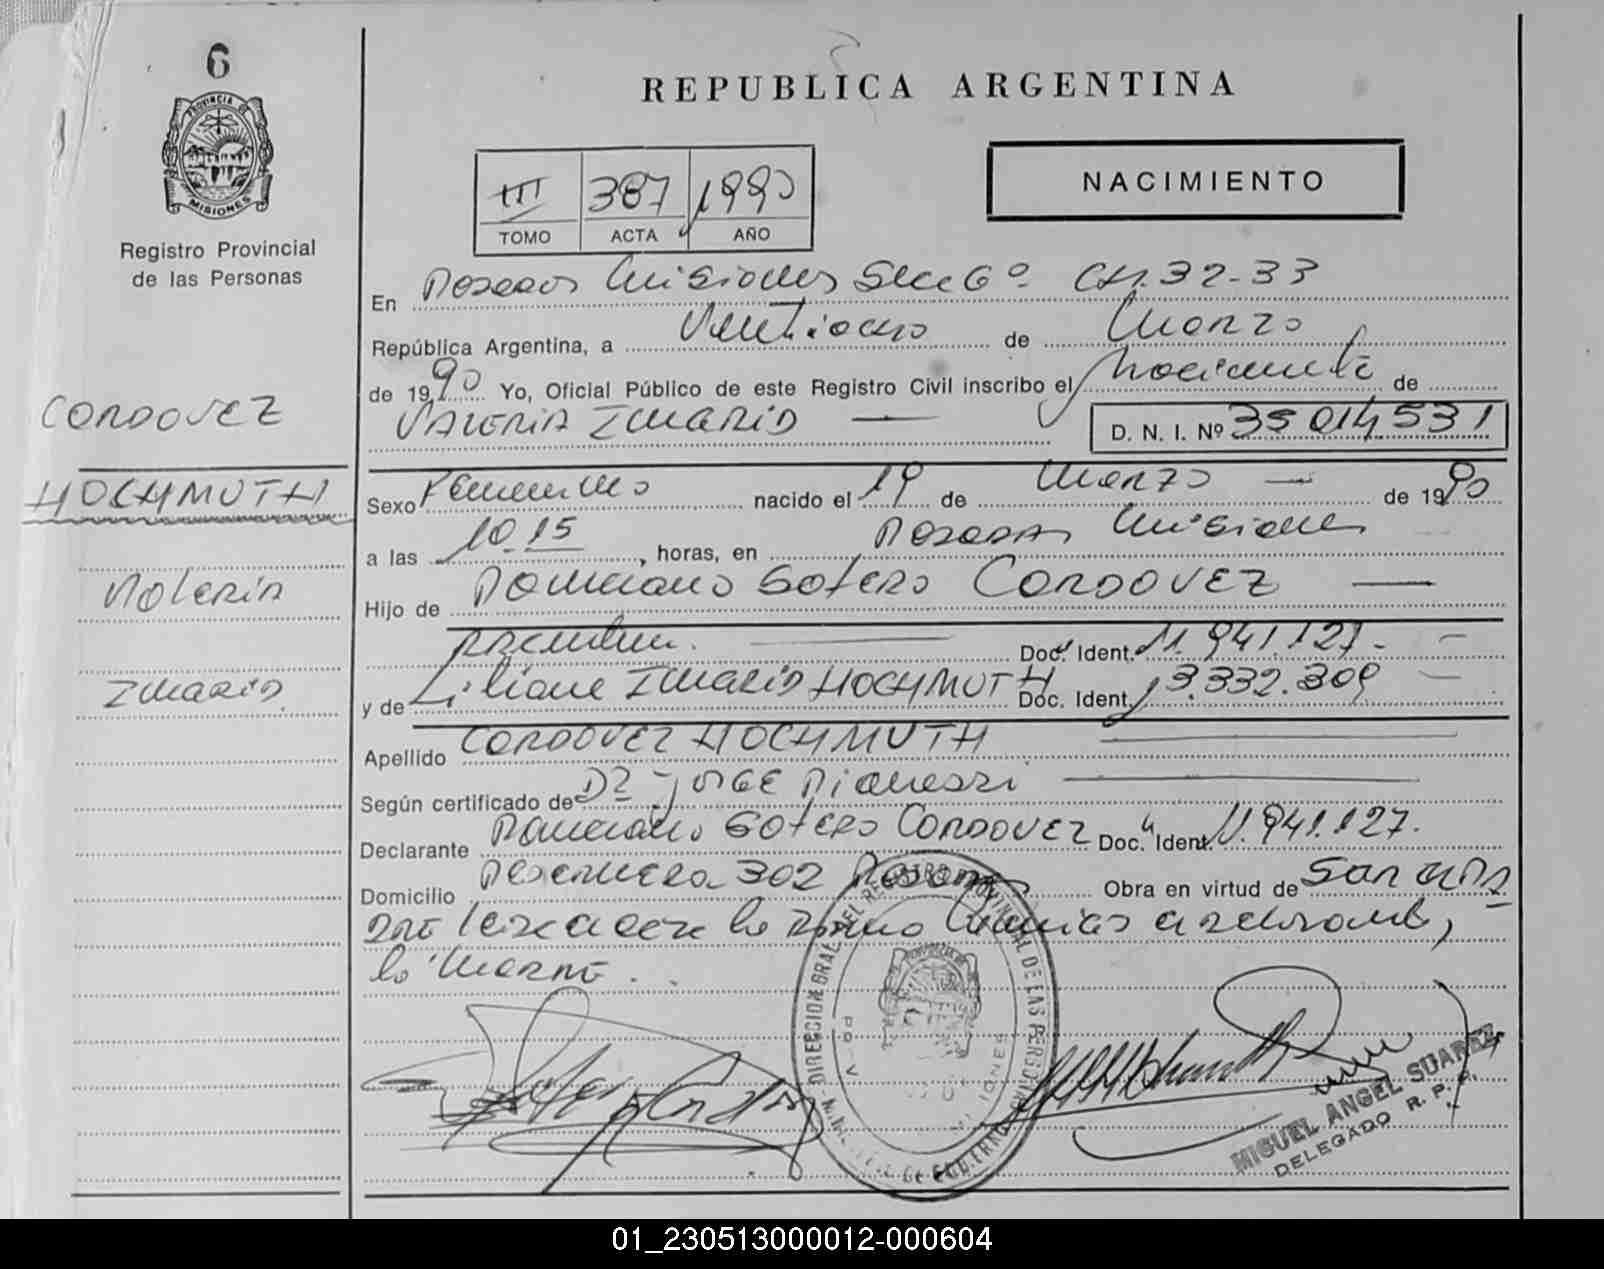 6
PROVINCIA DE
MISIONES
Registro Provincial
de las Personas
CORDOVEZ
HOCHMUTH
Valeria
Imarid
REPUBLICA ARGENTINA
III 387 1990
TOMO ACTA AÑO
NACIMIENTO
En Posadas Misiones Secc 6º CH. 32-33
República Argentina, a Ventiocho de Marzo
de 1990 Yo, Oficial Público de este Registro Civil inscribo el Nacimiento de
VALERIA IMARID
D. N. I. Nº 35014531
Sexo Femenino nacido el 19 de Marzo de 1990
a las 10.15, horas, en Posadas Misiones
Hijo de Sotero CORDOVEZ
Doc. Ident. 11.941.127.-
y de Liliana IMARID HOCHMUTH Doc. Ident. 13.332.309
Apellido CORDOVEZ HOCHMUTH
Según certificado de Dr JORGE
Declarante Sotero CORDOVEZ Doc. Ident. 11.941.127.
Domicilio 302 Posadas Obra en virtud de
lo
la Madre.
DIRECCION GRAL. DEL REGISTRO PROVINCIAL DE LAS PERSONAS
DE GOBIERNO
MISIONES
MIGUEL ANGEL SUAREZ
DELEGADO R. P. P.
01_230513000012-000604